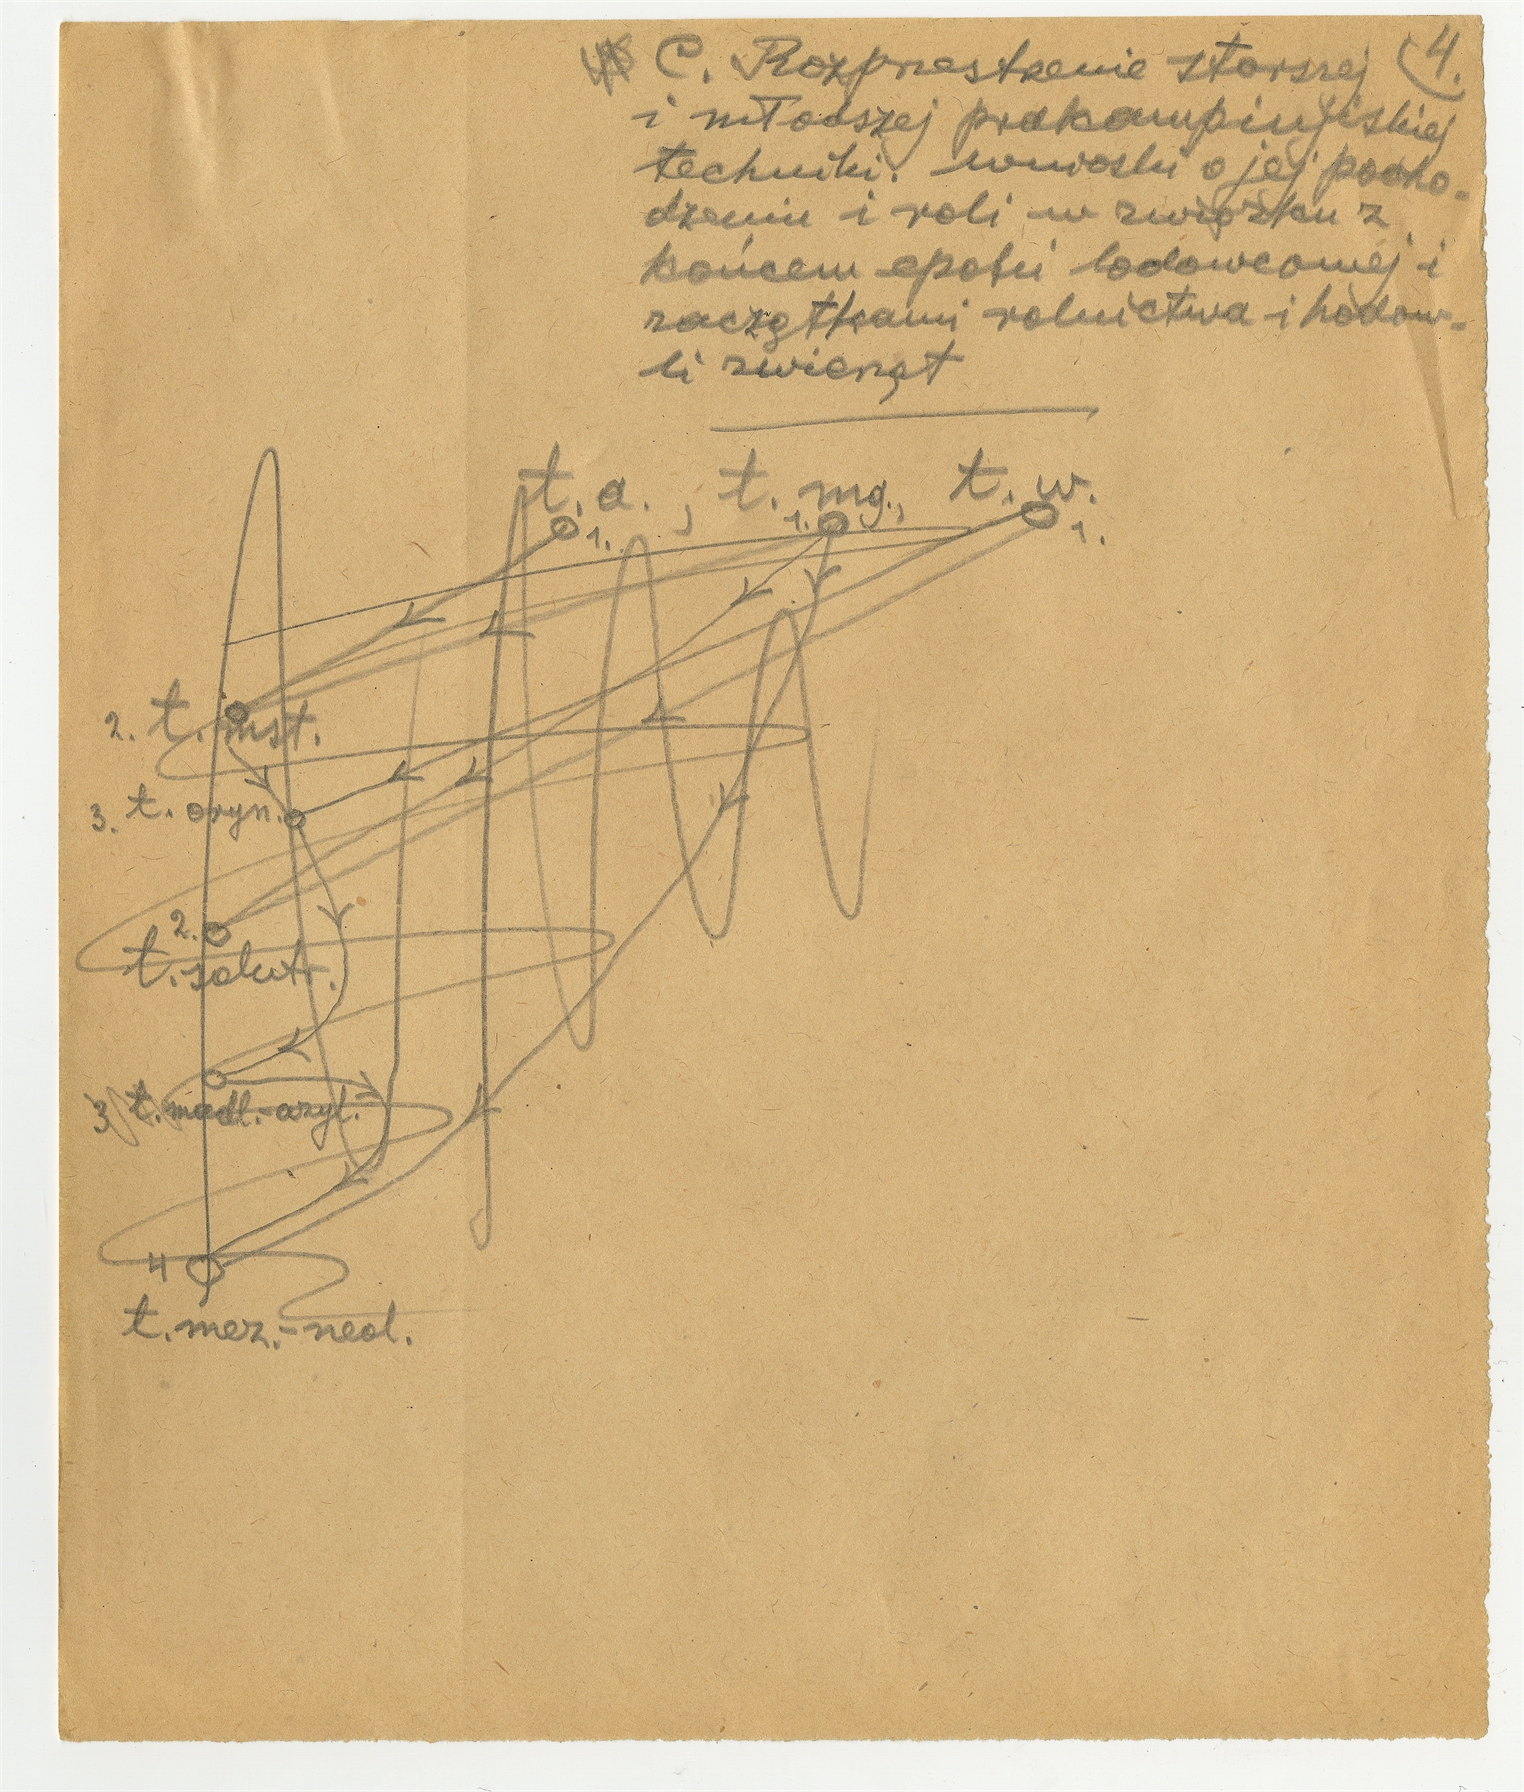 C. Rozprzestrzenie starszej (4.
i młodszej prakampinijskiej
techniki. Wnioski o jej pocho-
dzeniu i roli w związku z
końcem epoki lodowcowej i
początkami rolnictwa i hodow-
li zwierząt
t. a., t. mg., t. w.
1. 1. 1.
2. t. mst.
3. t. oryn.
2.
t. solutr.
3 t. madl.-azyl.
4
t. mez.-neol.